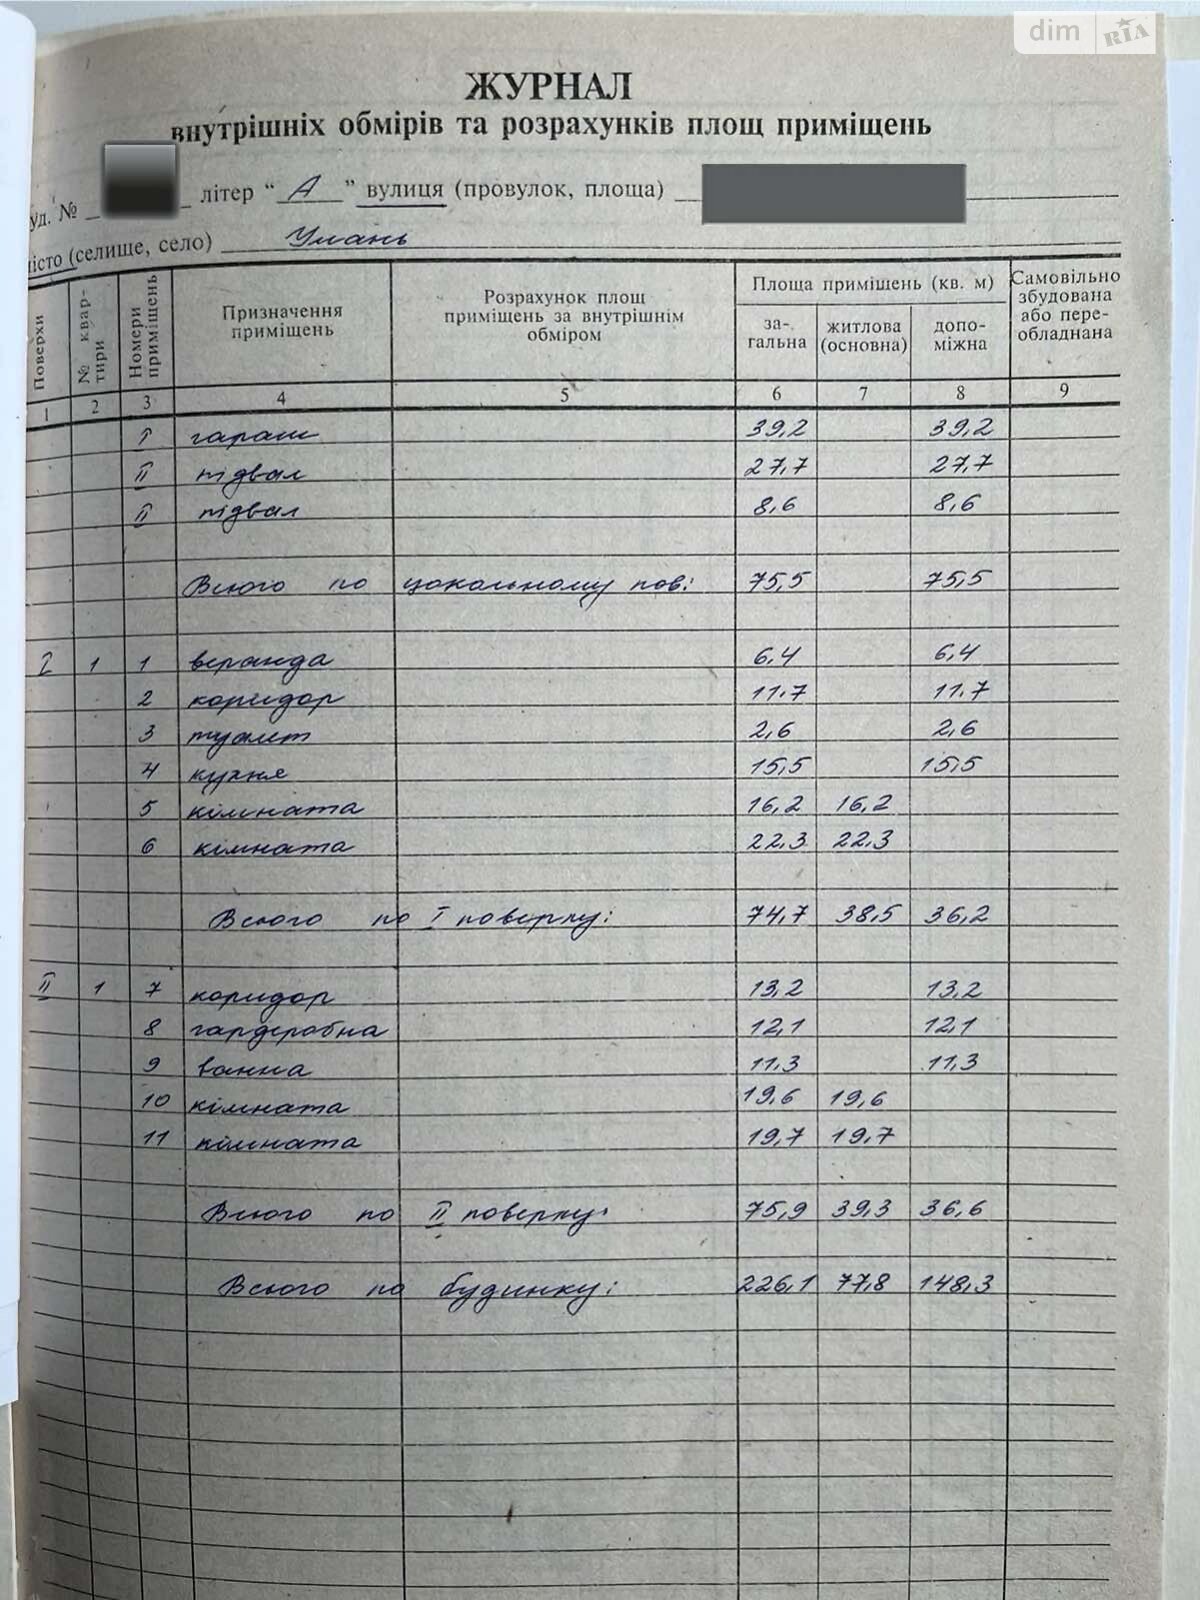 dim RIA
ЖУРНАЛ
внутрішніх обмірів та розрахунків площ приміщень
уд. № літер “ А ” вулиця (провулок, площа)
місто (селище, село) Умань
Поверхи № квар- тири Номери приміщень Призначення приміщень Розрахунок площ приміщень за внутрішнім обміром Площа приміщень (кв. м) за- гальна житлова (основна) допо- міжна Самовільно збудована або пере- обладнана
1 2 3 4 5 6 7 8 9
I гараж 39,2 39,2
II підвал 27,7 27,7
II підвал 8,6 8,6
Всього по цокольному пов: 75,5 75,5
I 1 1 веранда 6,4 6,4
2 коридор 11,7 11,7
3 туалет 2,6 2,6
4 кухня 15,5 15,5
5 кімната 16,2 16,2
6 кімната 22,3 22,3
Всього по I поверху: 74,7 38,5 36,2
II 1 7 коридор 13,2 13,2
8 гардеробна 12,1 12,1
9 ванна 11,3 11,3
10 кімната 19,6 19,6
11 кімната 19,7 19,7
Всього по II поверху: 75,9 39,3 36,6
Всього по будинку: 226,1 77,8 148,3